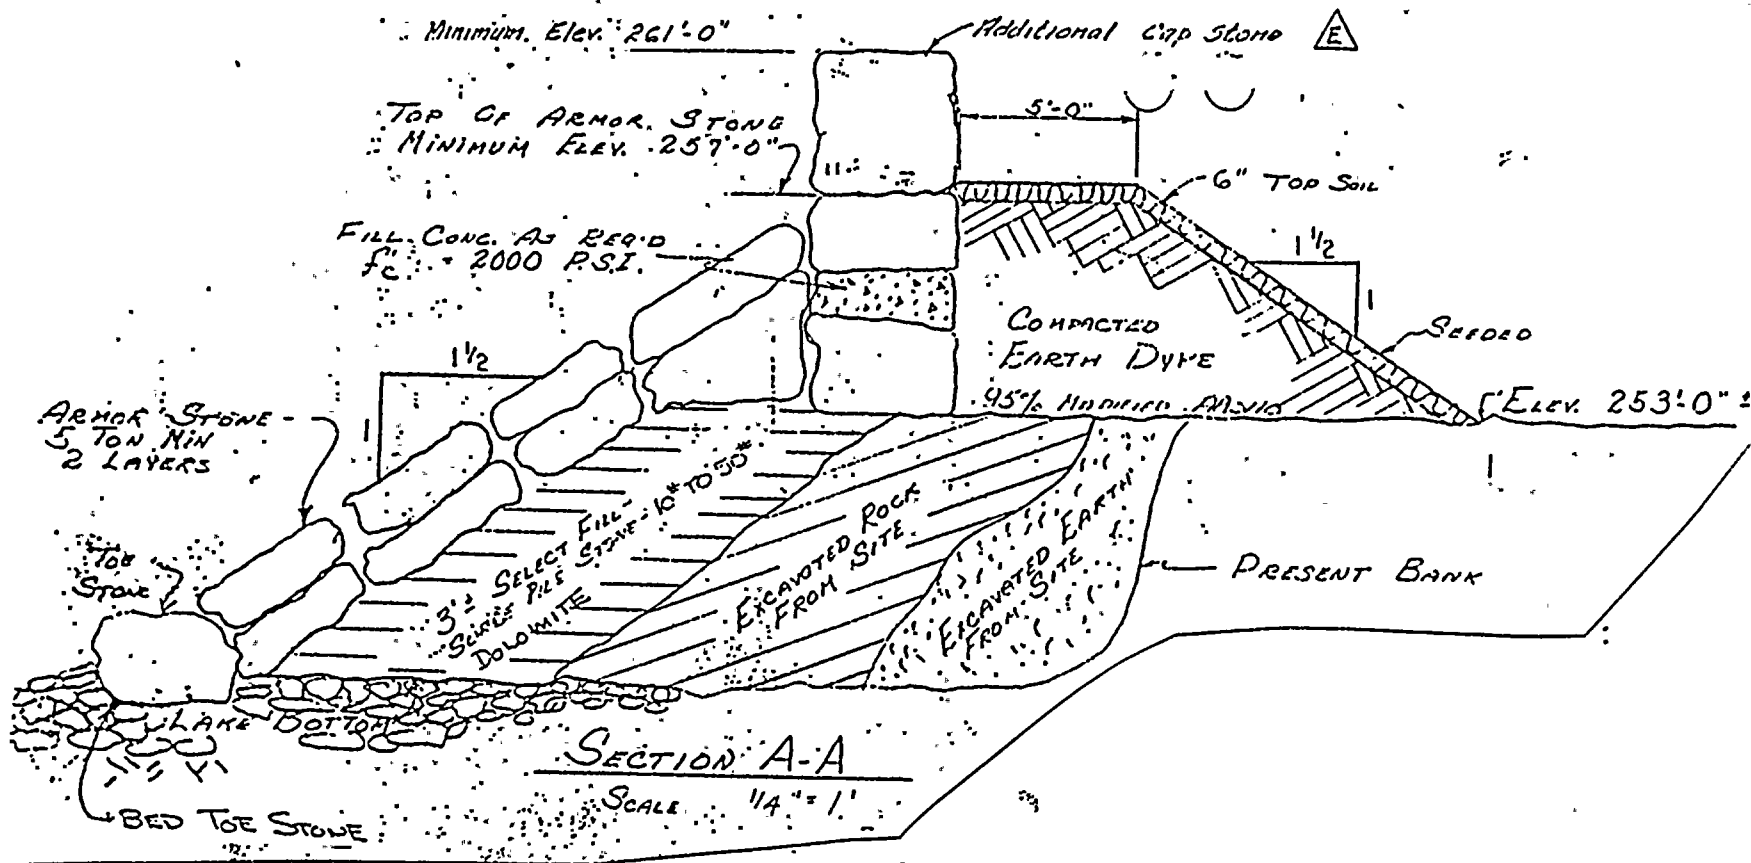 Minimum. Elev. 261'-0"
Additional Cap Stone E
TOP OF ARMOR STONE
MINIMUM ELEV. 257'-0"
5'-0"
6" TOP SOIL
FILL CONC. AS REQ'D
f'c = 2000 P.S.I.
1 1/2
1
COMPACTED
EARTH DYKE
95% MODIFIED
SEEDED
ELEV. 253'-0" ±
1 1/2
1
ARMOR STONE -
5 TON MIN
2 LAYERS
3'± SELECT FILL -
PILE STONE - 10# TO 50#
DOLOMITE
EXCAVATED ROCK
FROM SITE
EXCAVATED EARTH
FROM SITE
PRESENT BANK
TOE
STONE
LAKE BOTTOM
BED TOE STONE
SECTION A-A
SCALE 1/4" = 1'